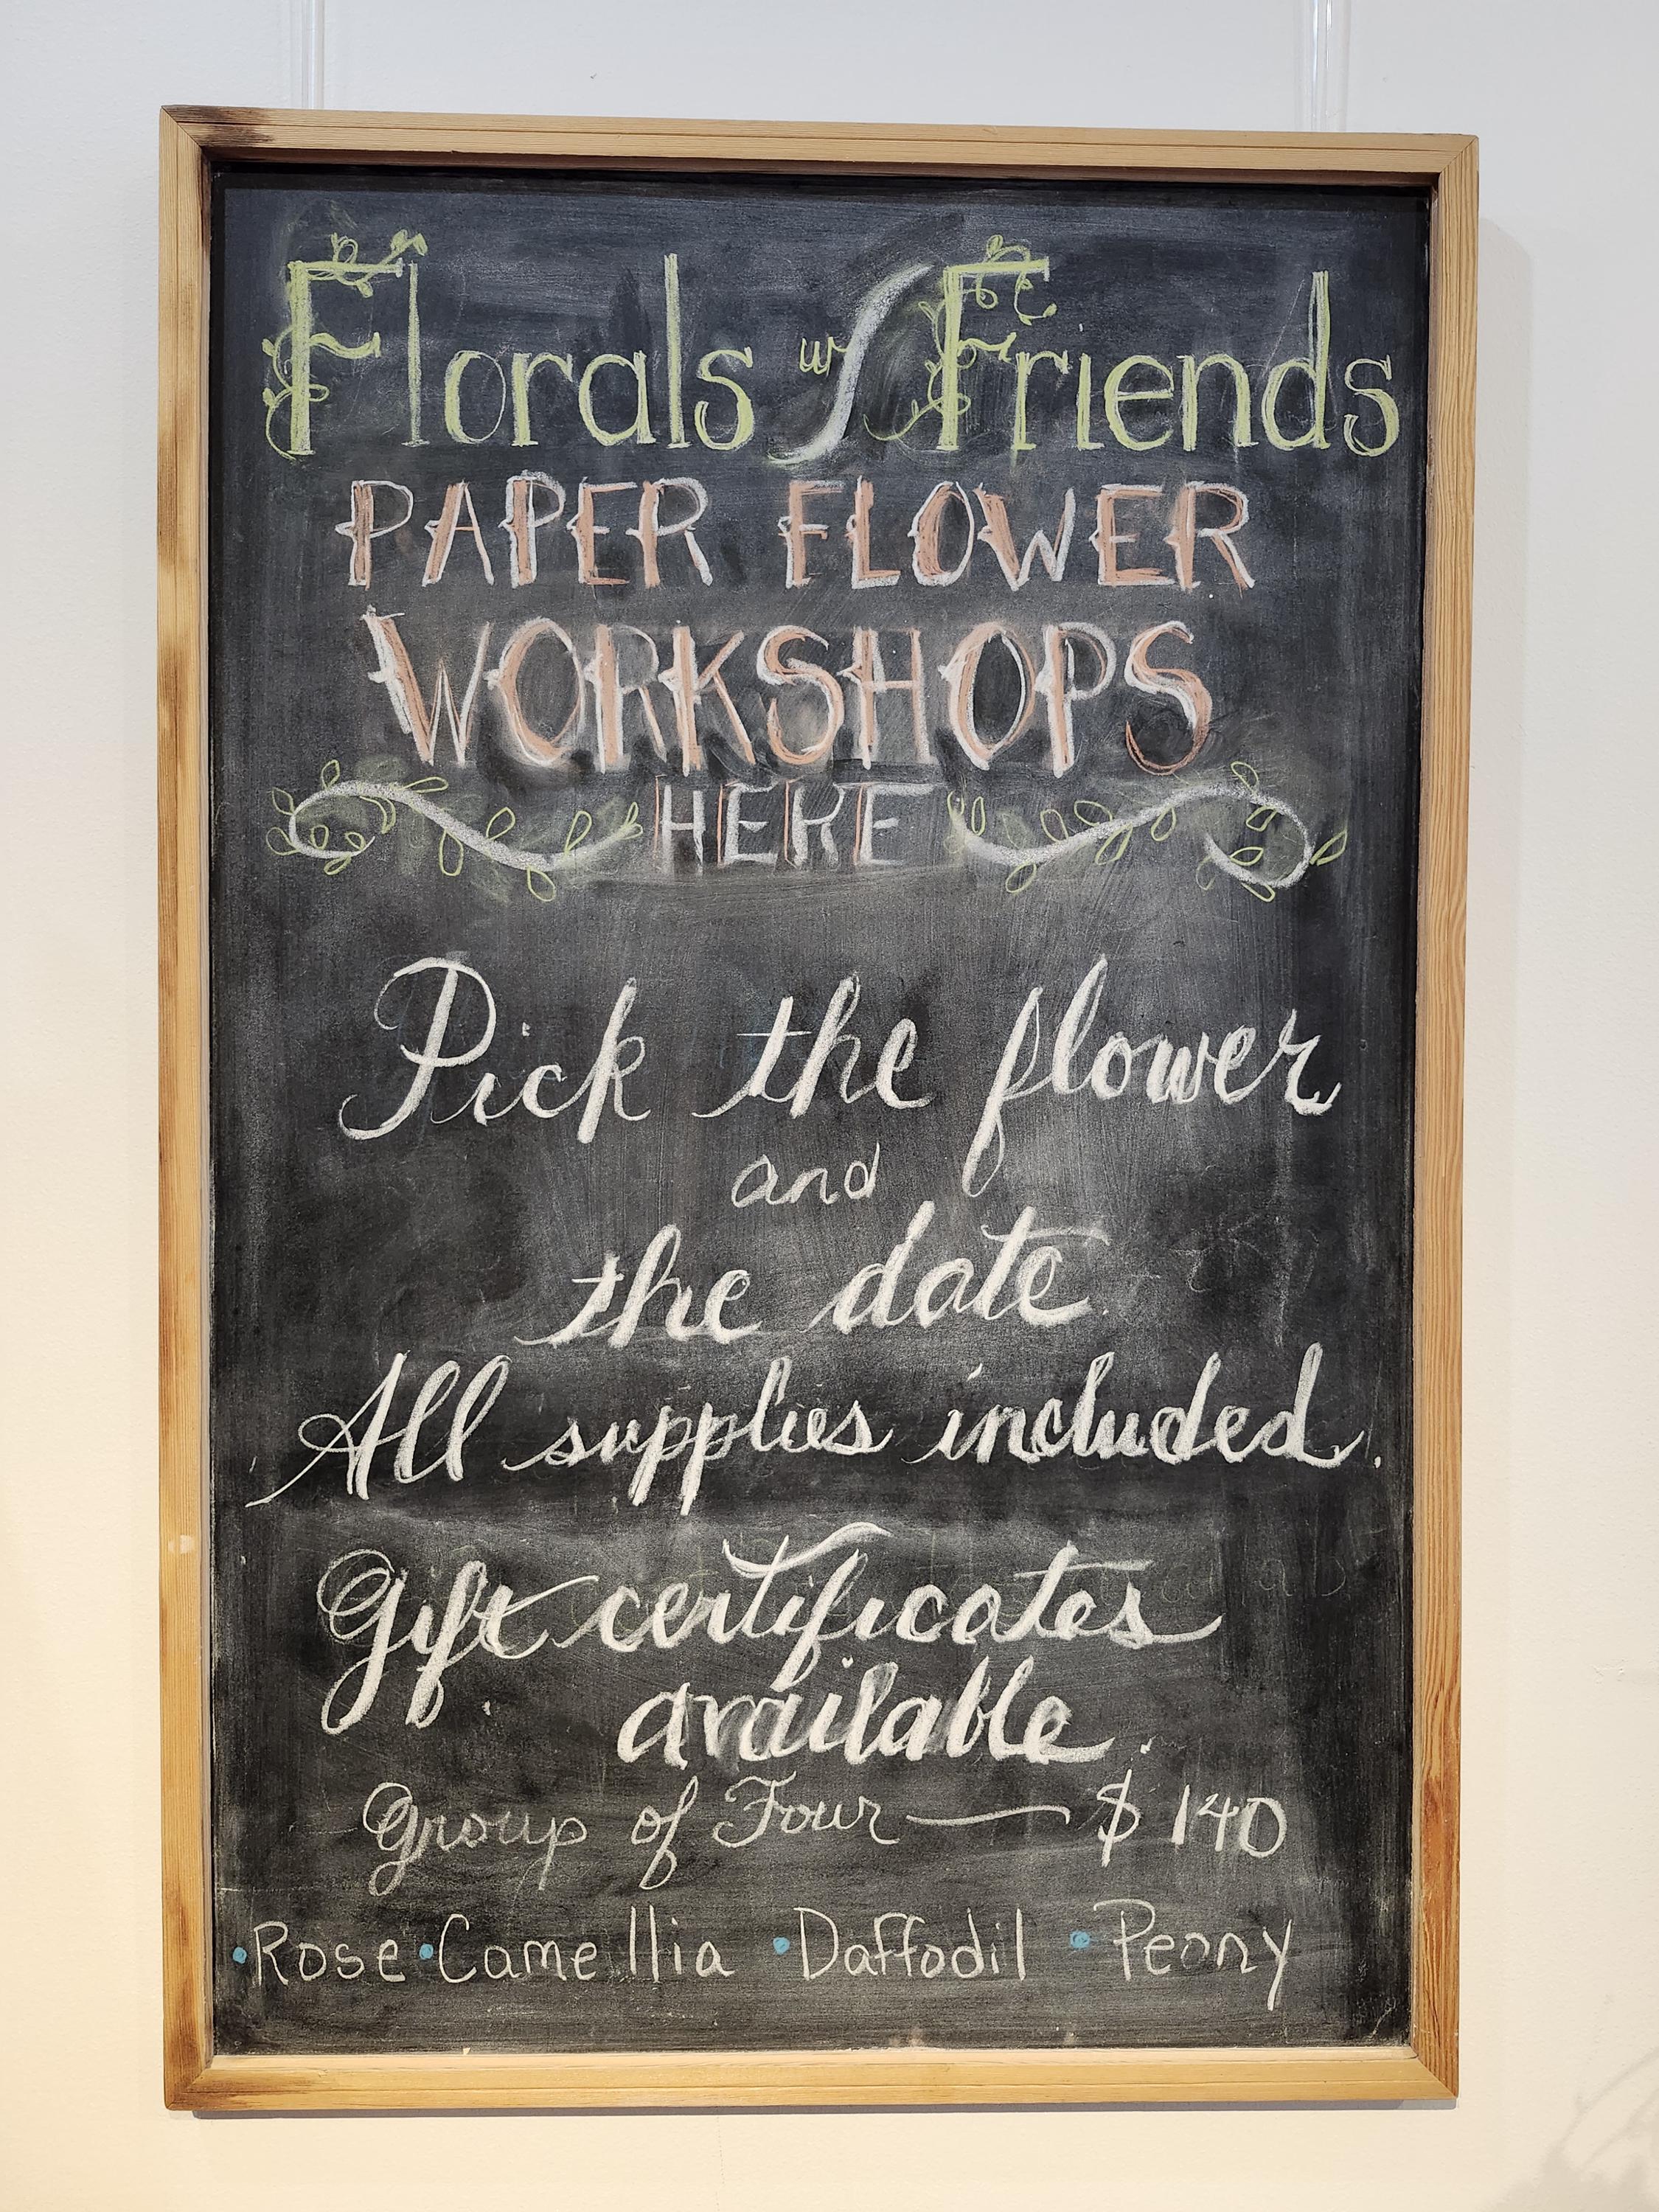 Florals w/ Friends
PAPER FLOWER
WORKSHOPS
HERE
Pick the flower
and
the date
All supplies included.
Gift certificates
available.
Group of Four — $140
• Rose • Camellia • Daffodil • Peony